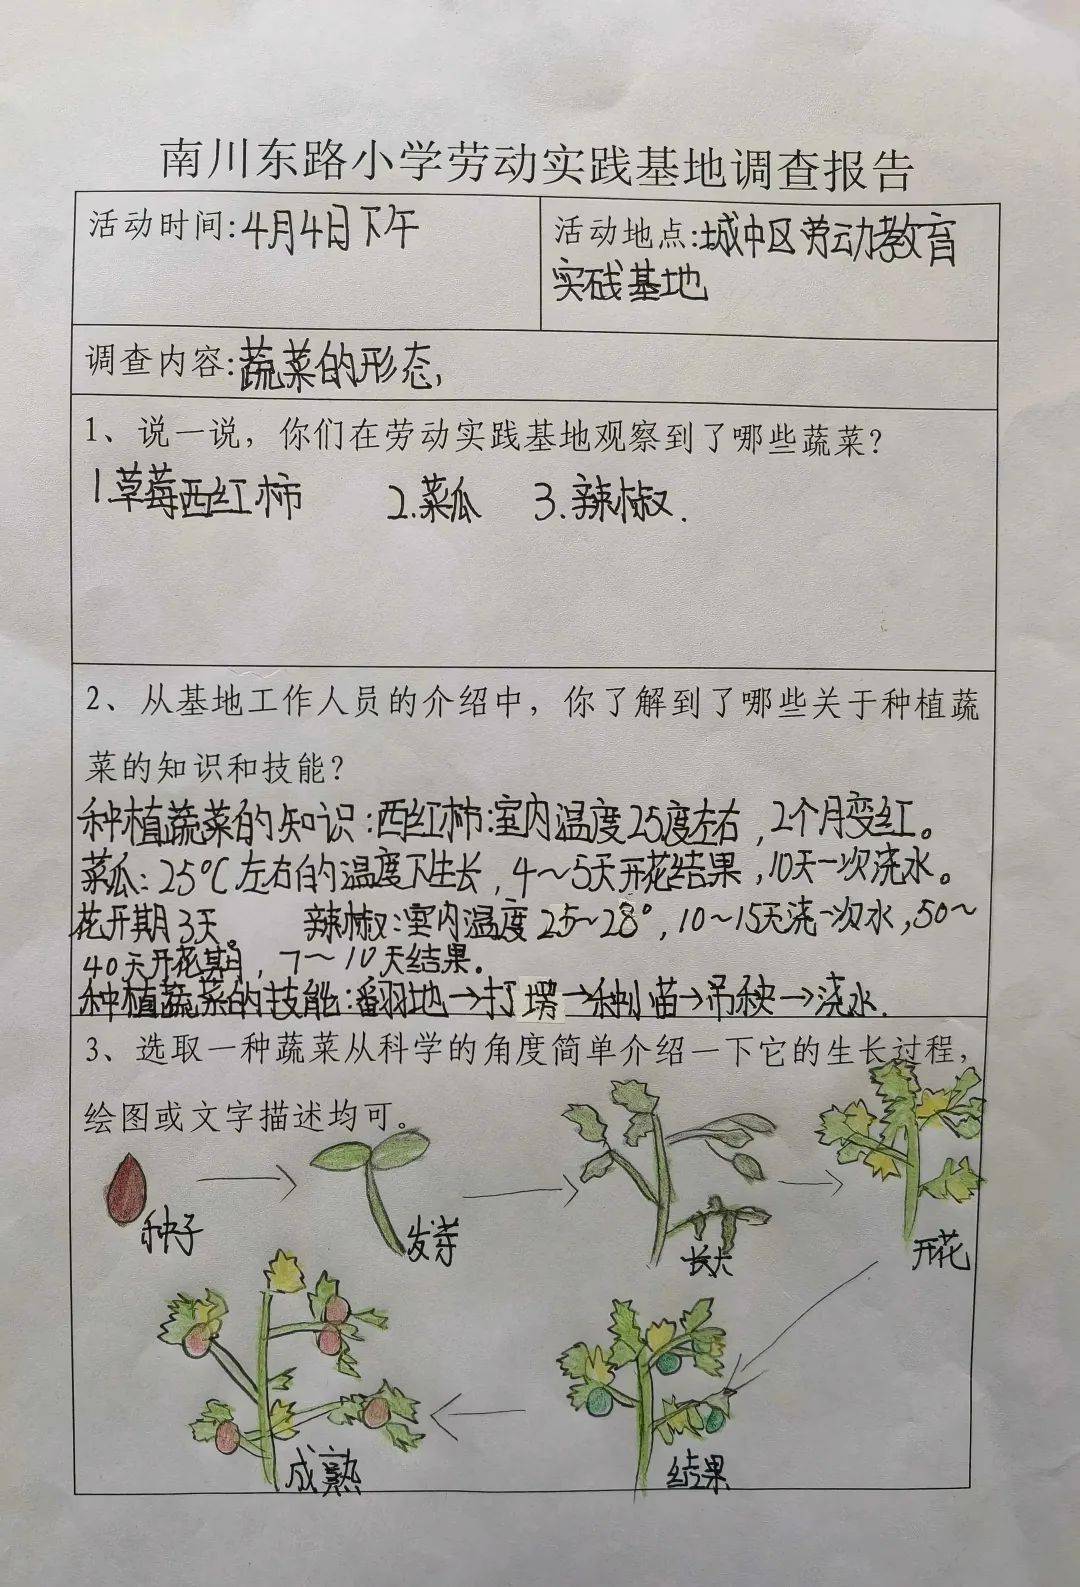 南川东路小学劳动实践基地调查报告
活动时间:4月4日下午
活动地点:城中区劳动教育
实践基地
调查内容:蔬菜的形态,
1、说一说，你们在劳动实践基地观察到了哪些蔬菜？
1.草莓西红柿 2.菜瓜 3.辣椒.
2、从基地工作人员的介绍中，你了解到了哪些关于种植蔬
菜的知识和技能？
种植蔬菜的知识:西红柿:室内温度25度左右,2个月变红。
菜瓜:25℃左右的温度下生长,4~5天开花结果,10天一次浇水。
花开期3天。 辣椒:室内温度25~28°,10~15天浇一次水,50~
40天开花期,7~10天结果。
种植蔬菜的技能:翻地→打塄→种苗→吊秧→浇水.
3、选取一种蔬菜从科学的角度简单介绍一下它的生长过程，
绘图或文字描述均可。
种子
发芽
长大
开花
结果
成熟